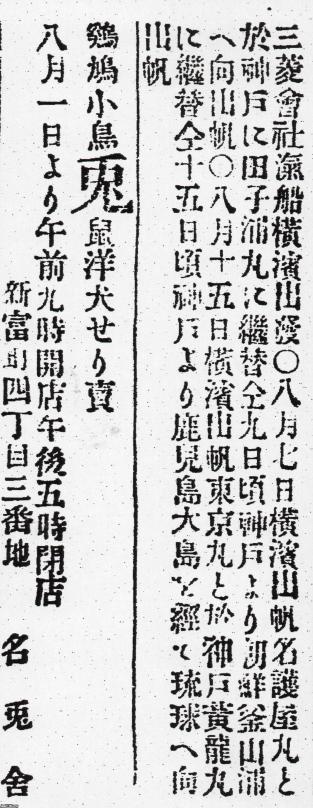 三菱會社滊船橫濱出發〇八月七日橫濱出帆名護屋丸と
於神戶に田子浦丸に繼替仝九日頃神戶より朝鮮釜山浦
へ向出帆〇八月十五日橫濱出帆東京丸と於神戶黃龍丸
に繼替仝十五日頃神戶より鹿兒島大島を經て琉球へ向
出帆
鷄鳩小鳥兎鼠洋犬せり賣
八月一日より午前九時開店午後五時閉店
新富町四丁目三番地 名兎舍